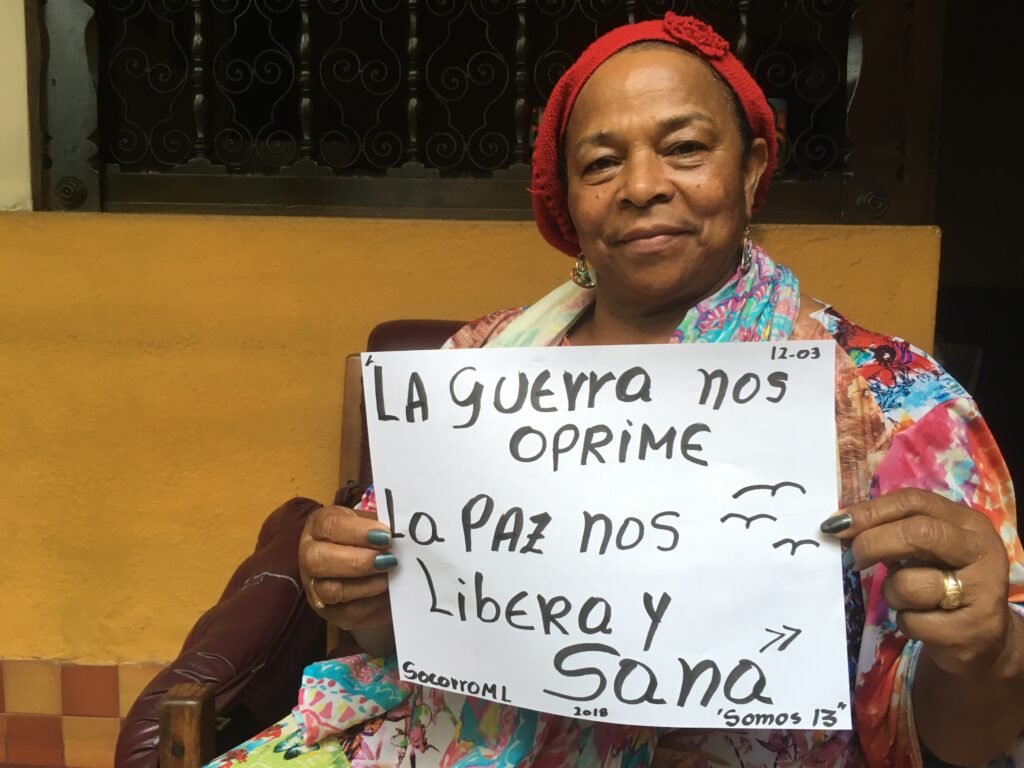 12-03
"LA guerra nos
OPRIME
La PAZ nos
Libera y
Sana"
SocorroML
2018
"Somos 13"